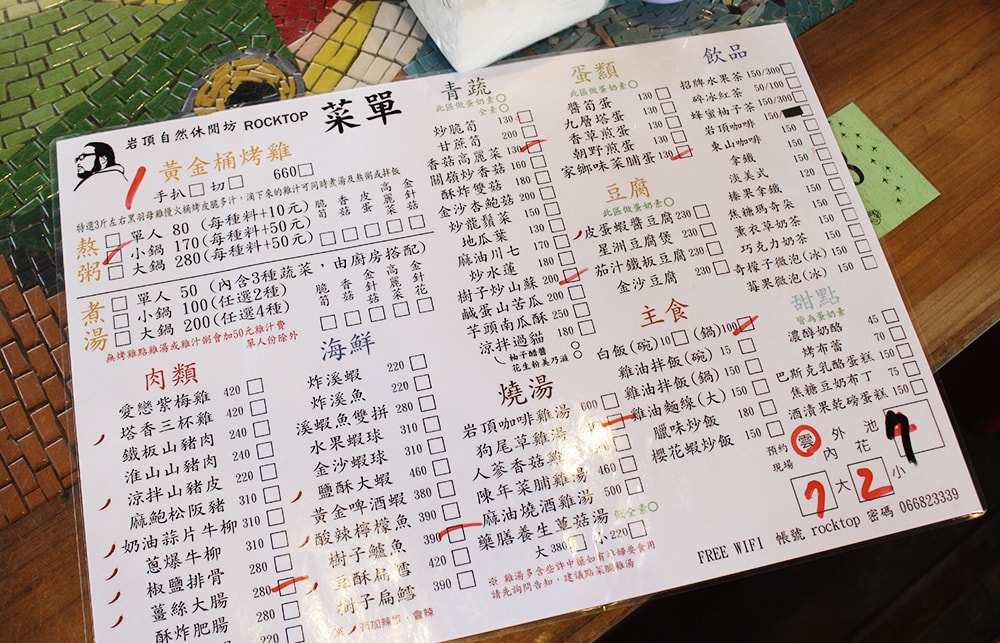 岩頂自然休閒坊 ROCKTOP 菜單
黃金桶烤雞
手扒 切 660
特選3斤左右黑羽母雞慢火桶烤皮脆多汁,滴下來的雞汁可同時煮湯及熬粥或拌飯
熬粥
單人 80 (每種料+10元)
小鍋 170(每種料+50元)
大鍋 280(每種料+50元)
脆筍
香菇
皮蛋
高麗菜
金針菇
煮湯
單人 50 (內含3種蔬菜,由廚房搭配)
小鍋 100(任選2種)
大鍋 200(任選4種)
脆筍
香菇
金針菇
高麗菜
金針花
無烤雞點雞湯或雞汁粥會加50元雞汁費
單人份除外
肉類
愛戀紫梅雞 420
塔香三杯雞 420
鐵板山豬肉 240
淮山山豬肉 240
涼拌山豬皮 220
麻鮑松阪豬 310
奶油蒜片牛柳 310
蔥爆牛柳 310
椒鹽排骨 280
薑絲大腸 280
酥炸肥腸 220
海鮮
炸溪蝦 220
炸溪魚 220
溪蝦魚雙拼 280
水果蝦球 310
金沙蝦球 310
鹽酥大蝦 460
黃金啤酒蝦 390
酸辣檸檬魚 390
樹子鱸魚 390
豆酥扁鱈 420
樹子扁鱈 390
※ 有加辣椒,會辣
青蔬
此區做蛋奶素
全素
炒脆筍 130
甘蔗筍 200
香菇高麗菜 130
關嶺炒香菇 190
酥炸雙菇 190
金沙杏鮑菇 190
炒龍鬚菜 150
地瓜葉 130
麻油川七 170
炒水蓮 180
樹子炒山蘇 200
鹹蛋山苦瓜 200
芋頭南瓜酥 250
涼拌過貓 180
柚子醋醬
花生粉美乃滋
燒湯
岩頂咖啡雞湯
狗尾草雞湯
人蔘香菇雞湯
陳年菜脯雞湯 460
麻油燒酒雞湯 500
藥膳養生菇菇湯 做全素
大 380 小 220
※ 雞湯多含些許中藥如有孕婦要食用
請先詢問告知,建議點菜脯雞湯
蛋類
此區做蛋奶素
醬筍蛋 130
九層塔蛋 130
香草煎蛋 130
朝野煎蛋 130
家鄉味菜脯蛋 130
豆腐
此區做蛋奶素
皮蛋蝦醬豆腐 230
星洲豆腐煲 230
茄汁鐵板豆腐 230
金沙豆腐 230
主食
白飯(碗)10 (鍋)100
雞油拌飯(碗) 15
雞油拌飯(鍋) 150
雞油麵線(大) 150
臘味炒飯 180
櫻花蝦炒飯 150
飲品
招牌水果茶 150/300
碎冰紅茶 50/100
蜂蜜柚子茶 150/300
岩頂咖啡 150
東山咖啡 150
拿鐵 150
淡美式 120
榛果拿鐵 150
焦糖瑪奇朵 150
薰衣草奶茶 150
巧克力奶茶 150
奇檬子微泡(冰) 150
莓果微泡(冰) 150
甜點
皆為蛋奶素
濃醇奶酪 45
烤布蕾 70
巴斯克乳酪蛋糕 150
焦糖豆奶布丁 75
酒漬果乾磅蛋糕 150
預約
現場
雲 外 池
內 花
7 大 2 小 7
FREE WIFI 帳號 rocktop 密碼 066823339